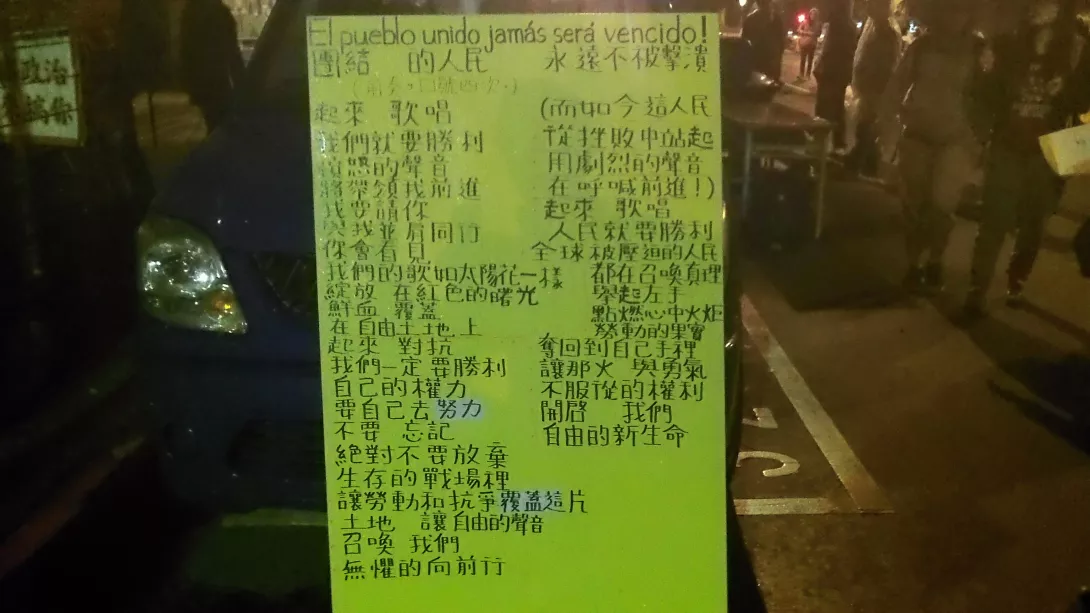 El pueblo unido jamás será vencido!
團結 的人民 永遠不被擊潰
起來 歌唱
我們就要勝利
憤怒的聲音
將帶領我前進
我要請你
與我並肩同行
你會看見
我們的歌如太陽花一樣
綻放 在紅色的曙光
鮮血 覆蓋
在自由土地上
起來 對抗
我們一定要勝利
自己的權力
要自己去努力
不要 忘記
絕對不要放棄
生存的戰場裡
讓勞動和抗爭覆蓋這片
土地 讓自由的聲音
召喚 我們
無懼的向前行
(而如今這人民
從挫敗中站起
用劇烈的聲音
在呼喊前進!)
起來 歌唱
人民就要勝利
全球被壓迫的人民
都在召喚真理
舉起左手
點燃心中火炬
勞動的果實
奪回到自己手裡
讓那火 與勇氣
不服從的權利
開啓 我們
自由的新生命
政治